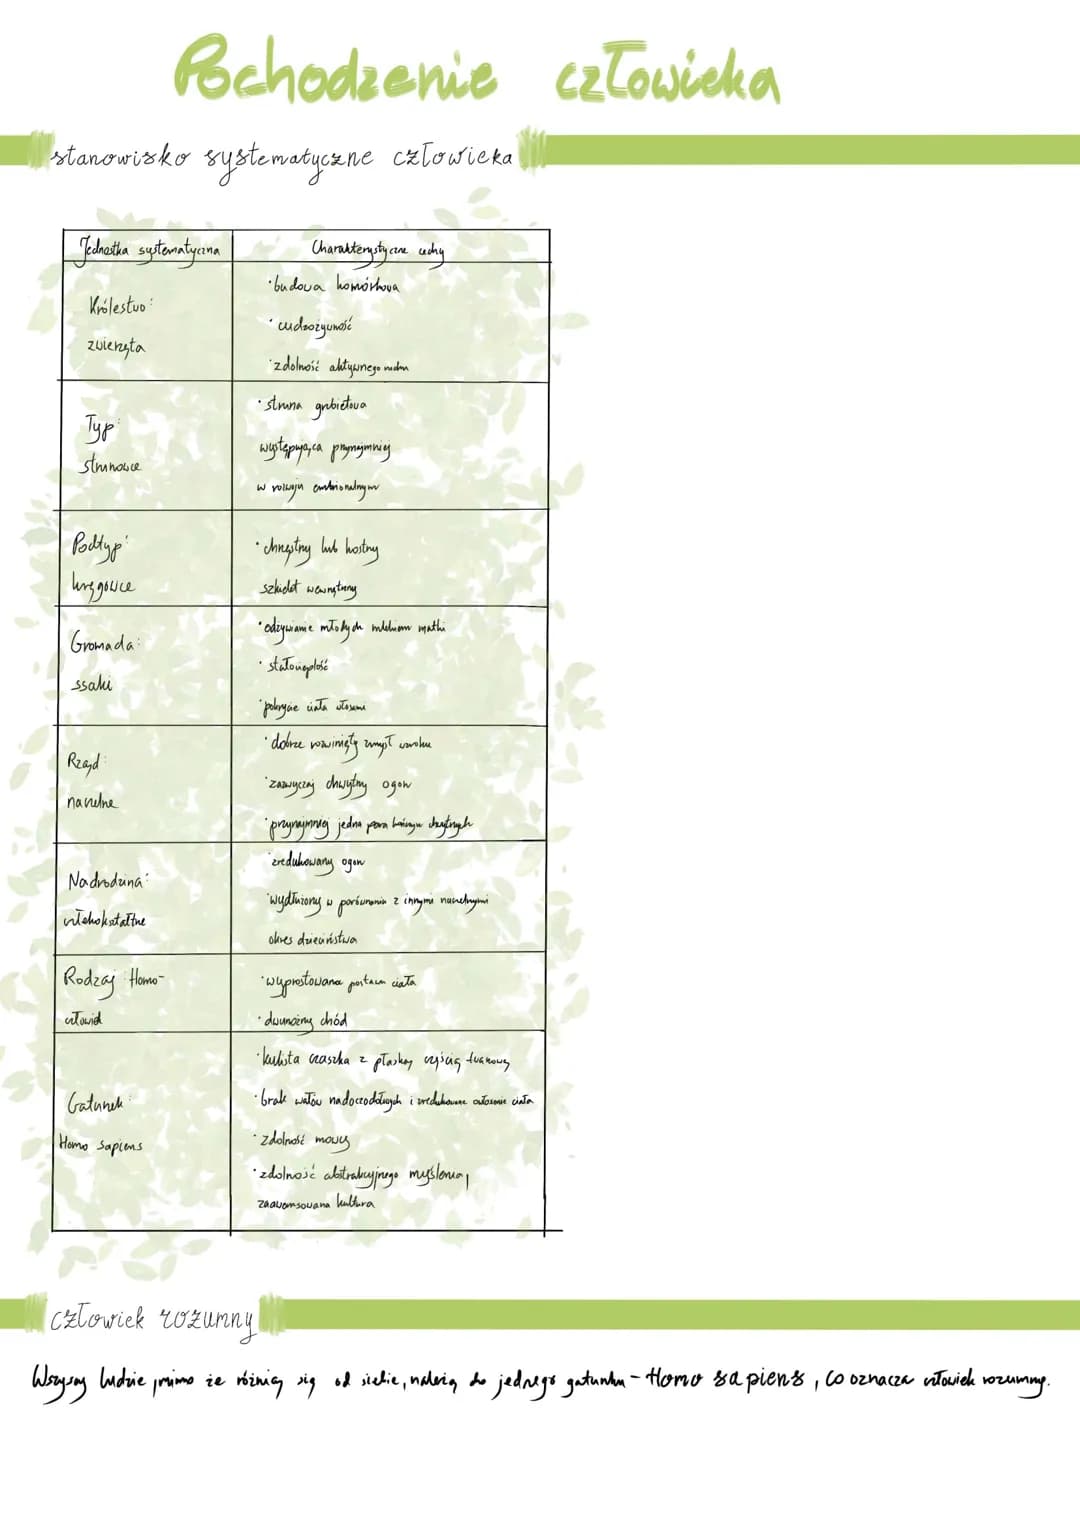 Pochodzenie człowieka
stanowisko systematyczne człowieka
Jednostka systematyczna
Charakterystyczne cechy
Królestwo:
zwierzęta
•budowa komórkowa
•cudzożywność
•zdolność aktywnego ruchu
Typ:
strunowce
•struna grzbietowa
występująca przynajmniej
w rozwoju embrionalnym
Podtyp:
kręgowce
•chrzęstny lub kostny
szkielet wewnętrzny
Gromada:
ssaki
•odżywianie młodych mlekiem matki
•stałocieplość
•pokrycie ciała włosami
Rząd:
naczelne
•dobrze rozwinięty zmysł wzroku
•zazwyczaj chwytny ogon
•przynajmniej jedna para kończyn chwytnych
Nadrodzina:
człekokształtne
•zredukowany ogon
•wydłużony w porównaniu z innymi naczelnymi
okres dzieciństwa
Rodzaj Homo-
człowiek
•wyprostowana postawa ciała
•dwunożny chód
Gatunek:
Homo Sapiens
•kulista czaszka z płaską częścią twarzową
•brak wałów nadoczodołowych i zredukowane owłosienie ciała
•zdolność mowy
•zdolność abstrakcyjnego myślenia,
zaawansowana kultura
człowiek rozumny
Wszyscy ludzie, mimo że różnią się od siebie, należą do jednego gatunku - Homo sapiens, co oznacza człowiek rozumny.